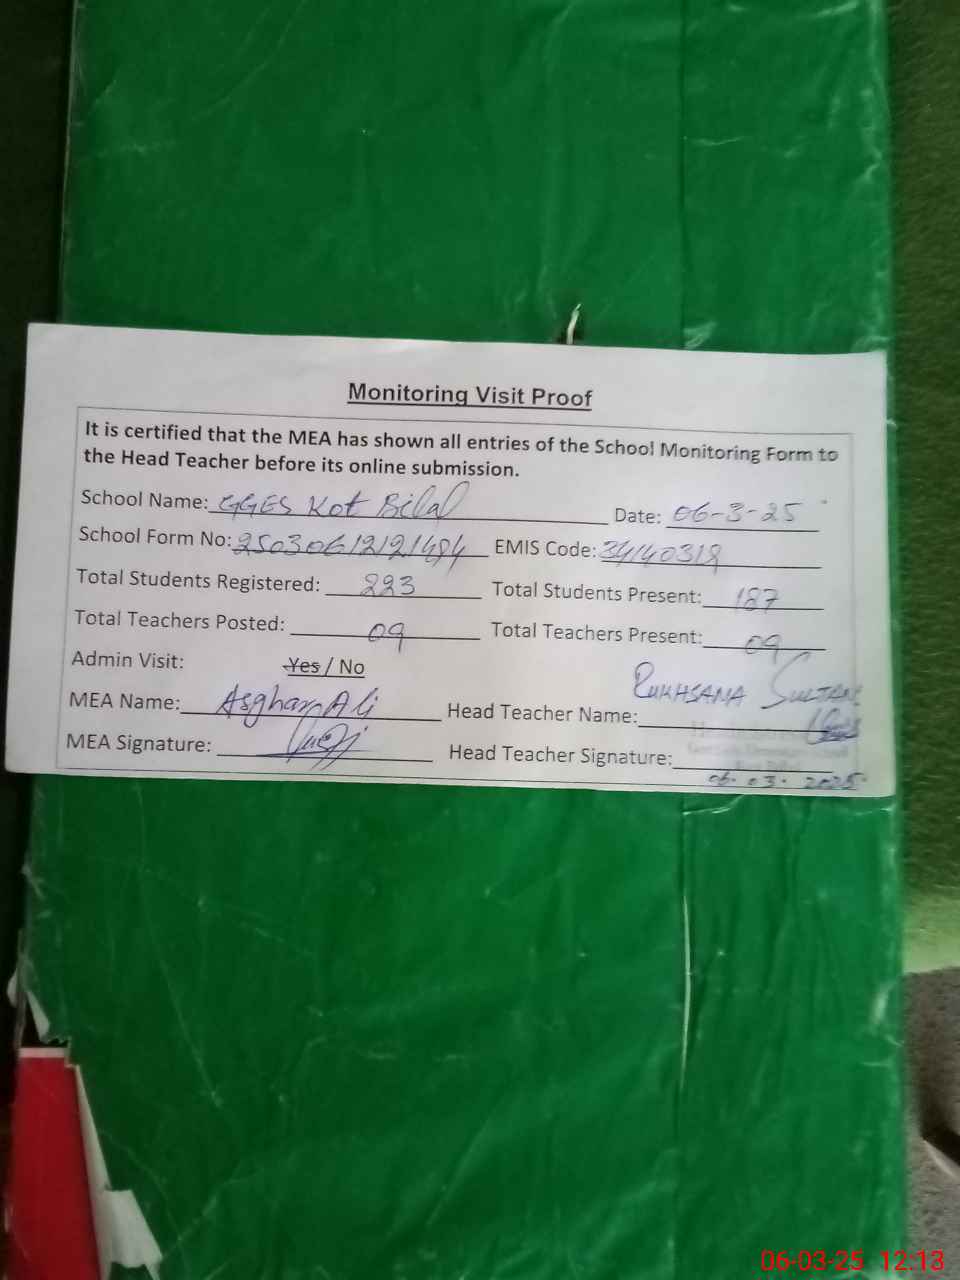 Monitoring Visit Proof
It is certified that the MEA has shown all entries of the School Monitoring Form to
the Head Teacher before its online submission.
School Name: GGES Kot Bilal Date: 06-3-25
School Form No: 25030612121484 EMIS Code: 34140318
Total Students Registered: 223 Total Students Present: 187
Total Teachers Posted: 09 Total Teachers Present: 09
Admin Visit: Yes / No
MEA Name: Asghar Ali Head Teacher Name: RUKHSANA SULTANA
MEA Signature: Head Teacher Signature:
06.03.2025
06-03-25 12:13